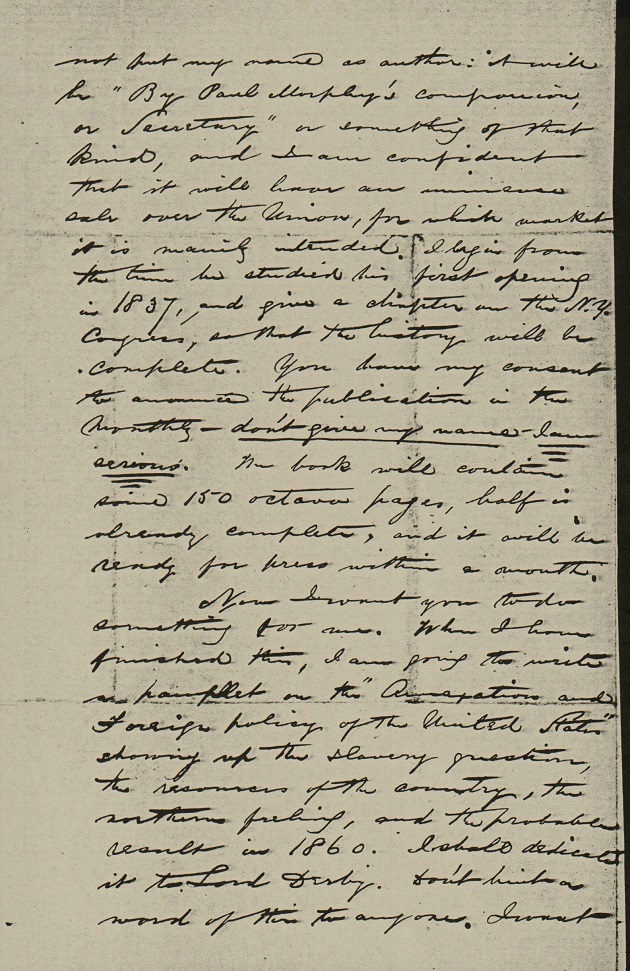 not put my name as author: it will
be "By Paul Morphy's companion,
or Secretary" or something of that
kind, and I am confident
that it will have an immense
sale over the Union, for which market
it is mainly intended. I begin from
the time he studied his first opening
in 1837, and give a chapter on the N.Y.
Congress, so that the history will be
complete. You have my consent
to announce the publication in the
Monthly – don't give my name – I am
serious. The book will contain
some 150 octavo pages, half is
already complete, and it will be
ready for press within a month.
Now I want you to do
something for me. When I have
finished this, I am going to write
a pamphlet on the "Annexation and
Foreign policy of the United States"
showing up the slavery question,
the resources of the country, the
northern feeling, and the probable
result in 1860. I shall dedicate
it to Lord Derby. Don't hint a
word of this to anyone. I want